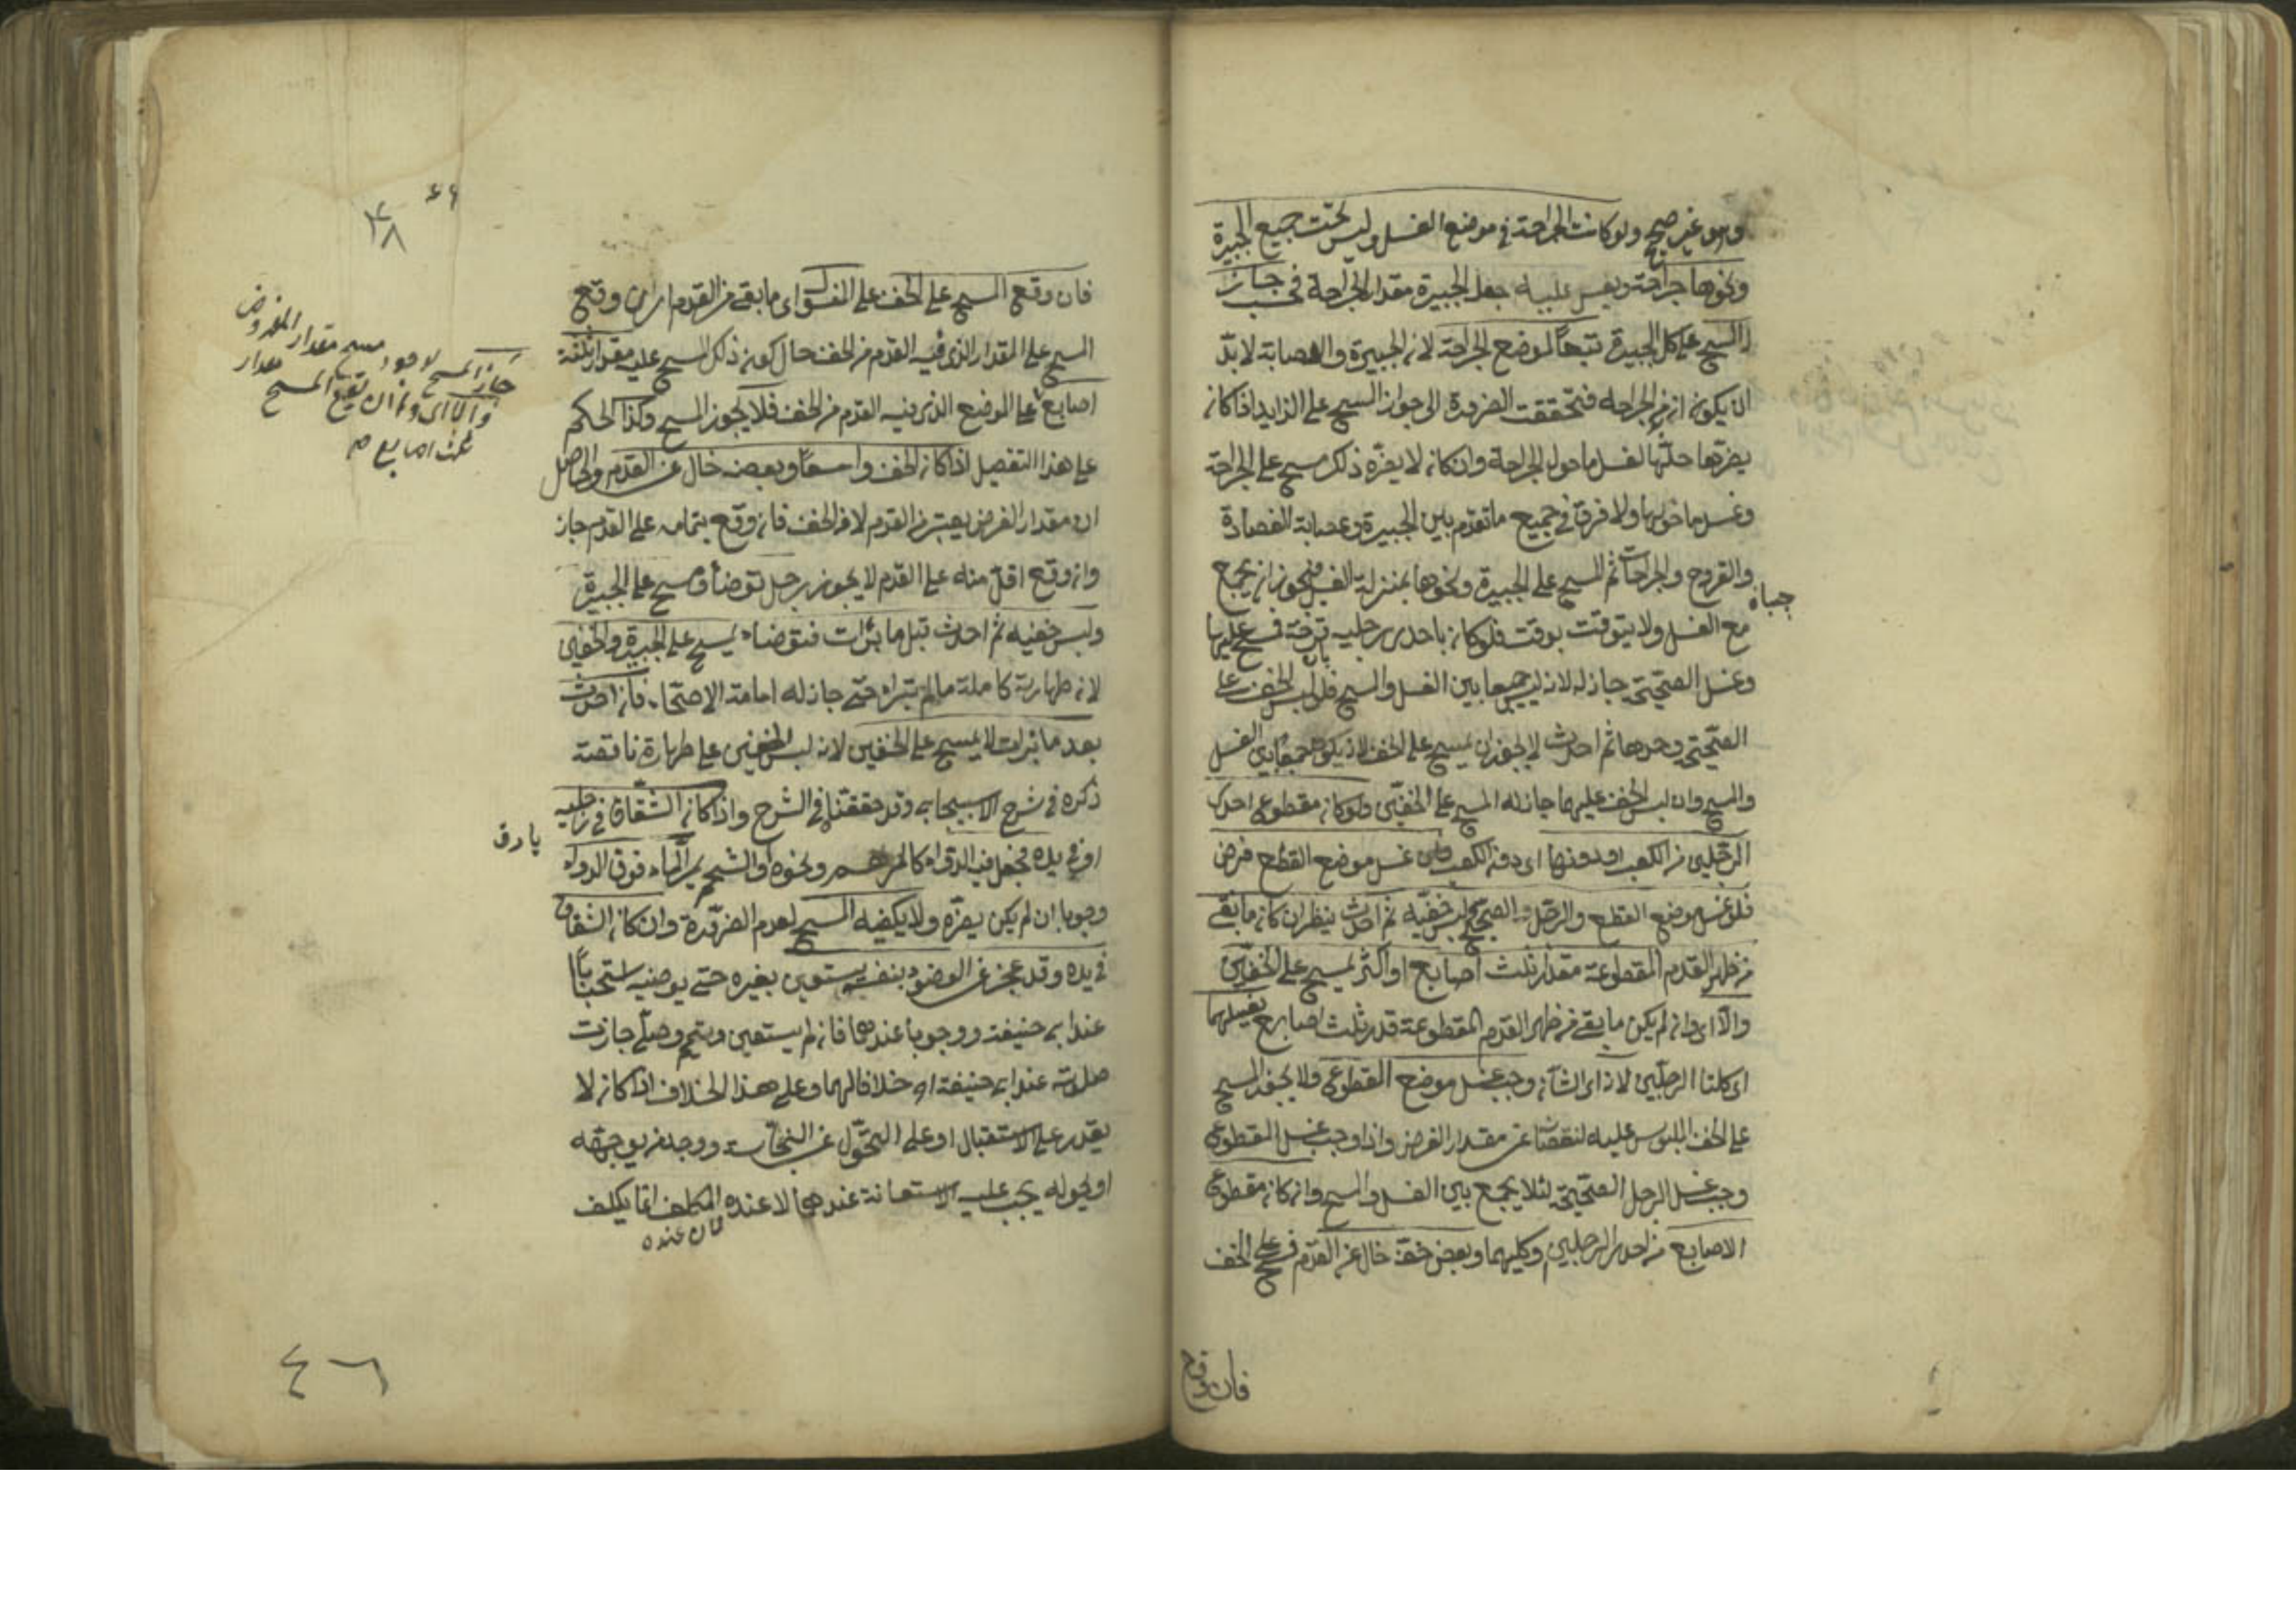 وهو غير صحيح ولو كانت الجراحة في موضع الغسل وليس تحت جميع الجبيرة
ونحوها جراحة جعل الجبيرة مقدار الجراحة جاز
المسح على كل الجبيرة تبعا لموضع الجراحة لان الجبيرة والعصابة لا بد
ان يكون ازيد من الجراحه فتحققت الضرورة الى جواز المسح على الزايد اذا كان
يضرها حلها لغسل ما حول الجراحة وان كان لا يضره ذلك مسح على الجراحة
وغسل ما حولها ولا فرق في جميع ما تقدم بين الجبيرة وعصابة الفصادة
والقروح والجراحات ثم المسح على الجبيرة ونحوها بمنزلة الغسل فيجوز ان يجمع
مع الغسل ولا يتوقت بوقت فلو كان باحدى رجليه قرحة فمسح عليها
وغسل الصحيحة جاز له لانه ليس جمعا بين الغسل والمسح فلو لبس الخف على
الصحيحة وحدها ثم احدث لا يجوز ان يمسح على الخف لانه يكون جمعا بين الغسل
والمسح وان لبس الخف عليهما جاز له المسح على الخفين ولو كان مقطوع احدى
الرجلين من الكعب او دونها اى دون الكعب غسل موضع القطع فرض
فلو غسل موضع القطع والرجل الصحيحة ولبس خفيه ثم احدث ينظر ان كان ما بقى
من ظهر القدم المقطوعة مقدار ثلث اصابع او اكثر يمسح على الخفين
والا اى وان لم يكن ما بقى من ظهر القدم المقطوعة قدر ثلث اصابع يغسلهما
اى كلتا الرجلين لانه اى الشان وجب غسل موضع القطوع ولا يجوز المسح
على الخف الملبوس عليه لنقصانه عن مقدار الفرض واذا وجب غسل المقطوع
وجب غسل الرجل الصحيحة لئلا يجمع بين الغسل والمسح وان كان مقطوع
الاصابع من احدى الرجلين او كليهما وبعض خفه خال عن القدم فمسح على الخف
فان وقع
فان وقع المسح على الخف على المغسول اى ما بقى من القدم اى ان وقع
المسح على المقدار الذى فيه القدم من الخف حال كون ذلك المسح عليه مقدار ثلثة
اصابع على الموضع الذى فيه القدم من الخف فلا يجوز المسح وكذا الحكم
على هذا التفصيل اذا كان الخف واسعا وبعضه خال عن القدم والحاصل
ان مقدار الفرض يعتبر من القدم لا من الخف فان وقع بتمامه على القدم جاز
وان وقع اقل منه على القدم لا يجوز رجل توضأ ومسح على الجبيرة
ولبس خفيه ثم احدث قبل ما برأت فتوضاء يمسح على الجبيرة والخفين
لانه طهارته كاملة ما لم تبراه حتى جاز له امامة الاصحاء فان احدث
بعد ما برات لا يمسح على الخفين لانه لبس الخفين على طهارة ناقصة
ذكره في شرح الاسبيجابى وقد حققناه في الشرح واذا كان الشقاق في رجليه
او في يده فجعل فيه الدواء كالمرهم ونحوه او الشحم يمر الماء فوق الدواء
وجوبا ان لم يكن يضره ولا يكفيه المسح لعدم الضرورة وان كان الشقاق
في يده وقد عجز عن الوضوء بنفسه يستعين بغيره حتى يوضيه استحبابا
عند ابى حنيفة ووجوبا عندهما فان لم يستعين وتيمم وصلى جازت
صلوته عند ابى حنيفة خلافا لهما وعلى هذا الخلاف اذا كان لا
يقدر على الاستقبال او على التحول عن النجاسة ووجد من يوجهه
او يحوله يجب عليه الاستعانة عندهما لا عنده المكلف انما يكلف
لان عنده
جاز المسح مسح مقدار المفروض
والا اى وان يقع المسح مقدار
ثلث اصابع
٤٦